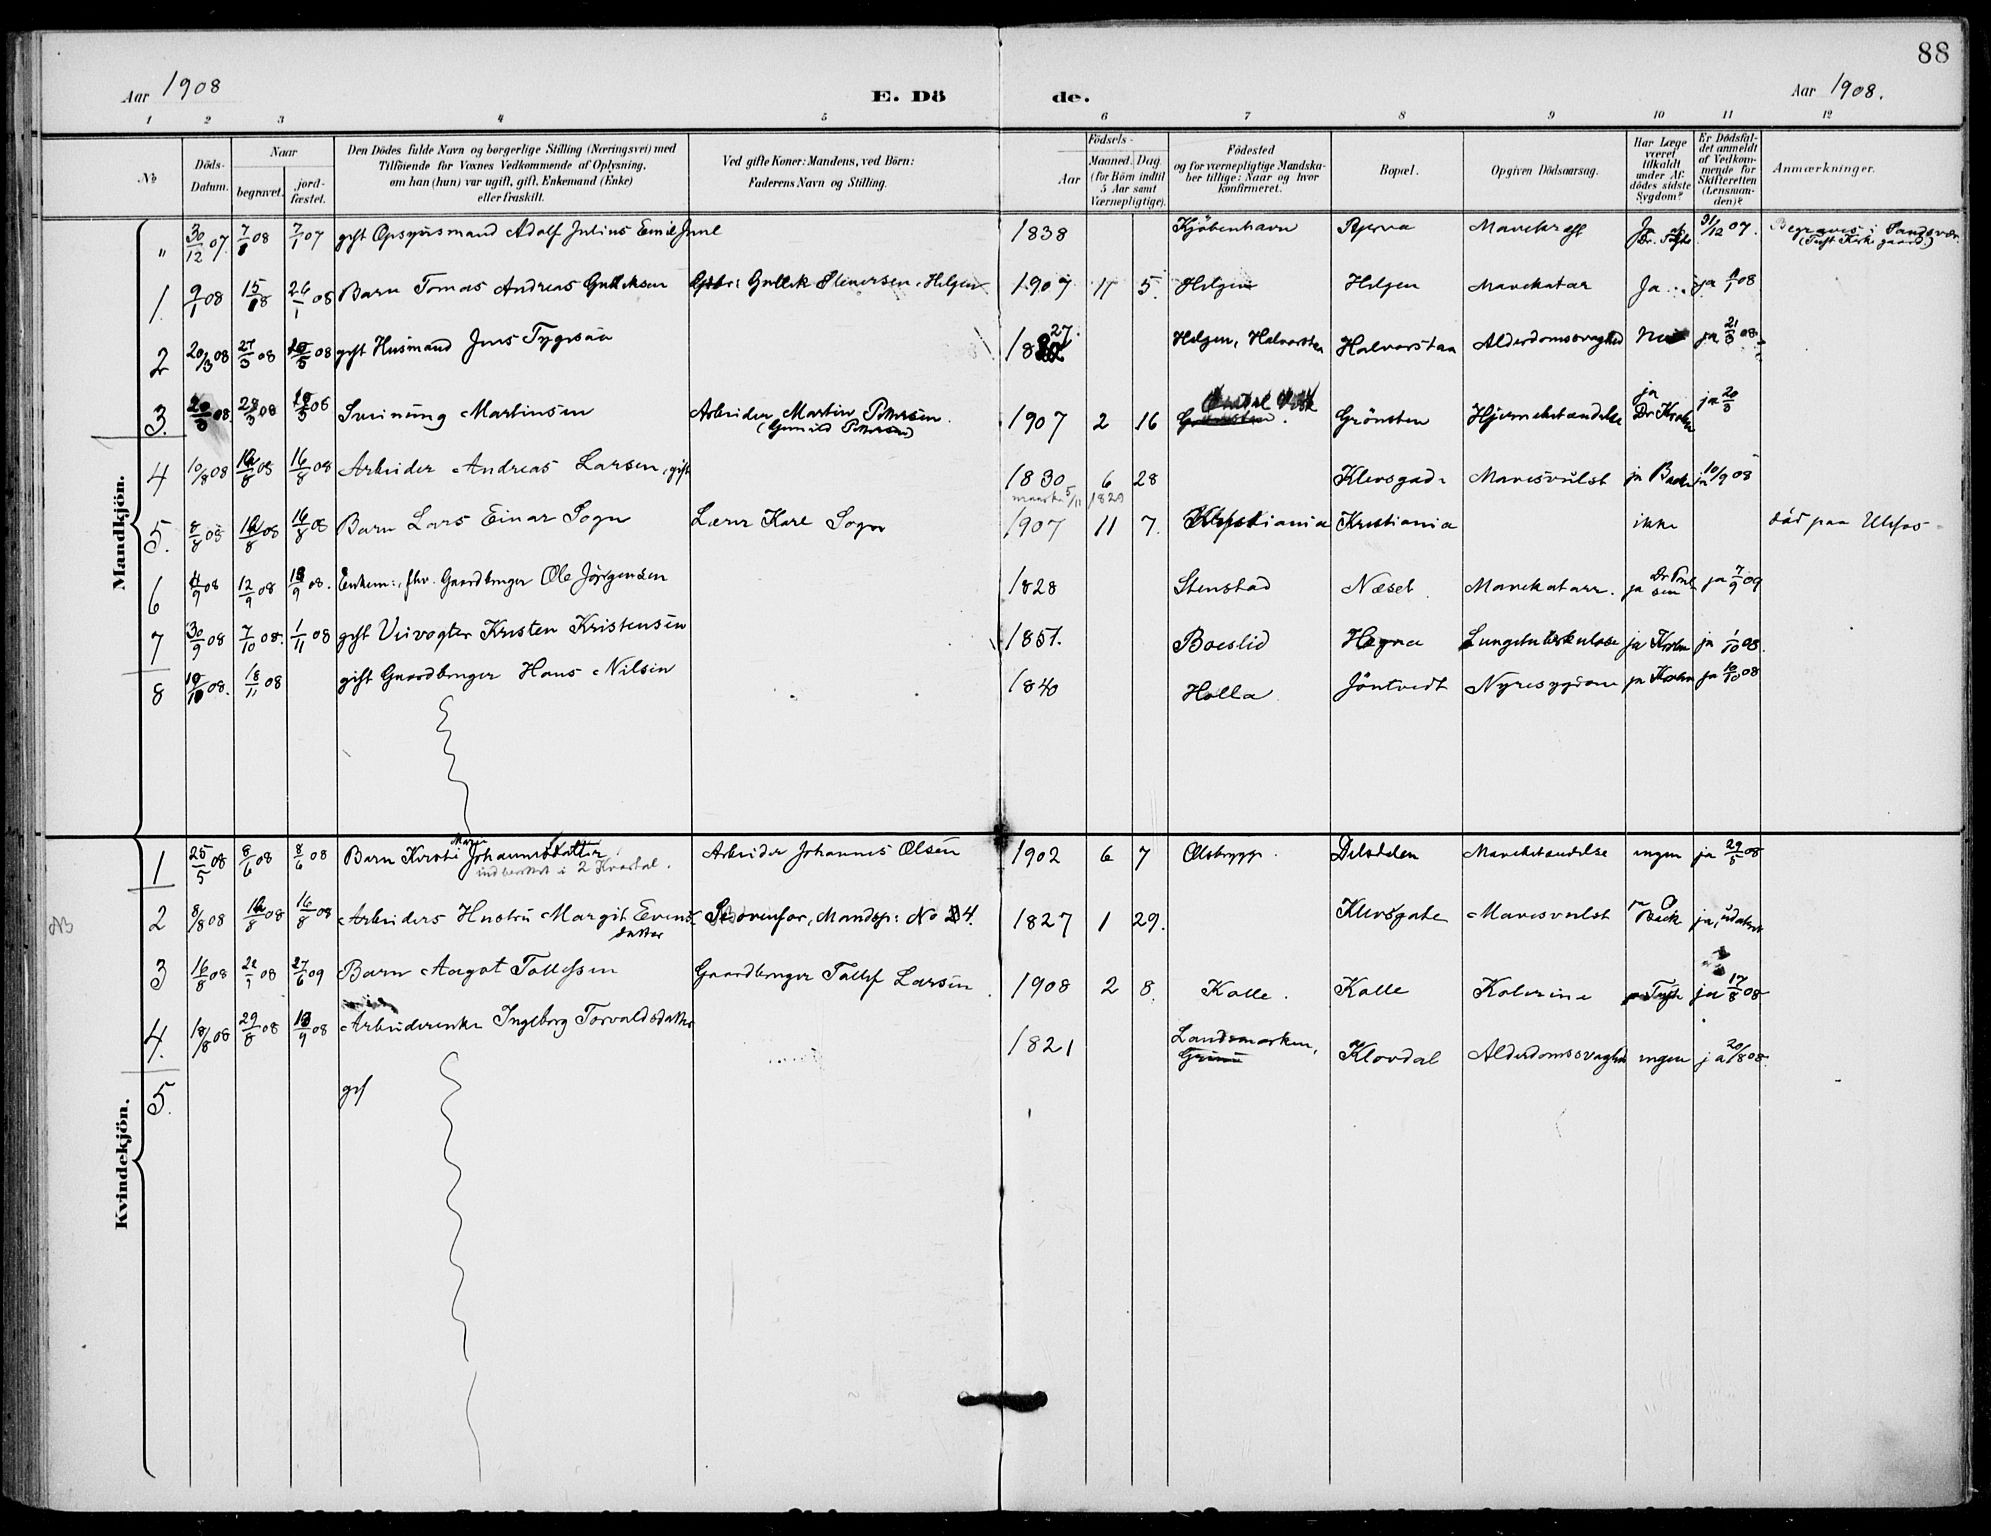 88
Aar 1908
E. Dö
de.
Aar 1908.
1 2 3 4 5 6 7 8 9 10 11 12
No
Döds-Datum.
Naar
begravet.
jord-fæstet.
Den Dödes fulde Navn og borgerlige Stilling (Næringsvei) med
Tilföiende for Voxnes Vedkommende af Oplysning,
om han (hun) var ugift, gift, Enkemand (Enke)
eller fraskilt.
Ved gifte Koner: Mandens, ved Börn:
Faderens Navn og Stilling.
Födsels-
Aar
Maaned. Dag
(for Börn indtil
5 Aar samt
Værnepligtige).
Födested
og for værnepligtige Mandska-
ber tillige: Naar og hvor
konfirmeret.
Bopæl.
Opgiven Dödsaarsag.
Har Læge
været
tilkaldt
under Af-
dödes sidste
Sygdom?
Er Dödsfal-
det anmeldt
af Vedkom-
mende for
Skifteretten
(Lensman-
den)?
Anmærkninger.
Mandkjön.
" 30/12 07. 7/1 08 7/1 07 gift Opsynsmand Adolf Julius Emil Juul 1838 Kjöbenhavn Mavekræft Ja 31/12 07. Begraves i Sandsvær.
1. 9/1 08 15/1 08 26/1 08 Barn Tomas Andreas Gulleksen Gullek Stenersen, Helgen 1907 11 5. Helgen Helgen Mavekatar Ja ja 08
2 20/3 08 27/3 08 08 gift Husmand Jens 1827. Helgen, Halvorstaa Halvorstaa Alderdomssvaghed ja 21/3 08
3. 20/3 08. 28/3 08 Martinsen Arbeider Martin Pettersen. 1907 2 16 Grönsten Hjernebetændelse ja Dr. Krohn ja 20/3
4 10/8 08 16/8 08 16/8 08 Arbeider Andreas Larsen, gift 1830 6 28 Klevsgad. Mavesvulst ja 10/9 08
maaske 5/11 1829
5. 8/8 08 16/8 08 16/8 08 Barn Lars Einar Sogn Lærer Karl Sogn 1907 11 7. Kristiania Kristiania ikke död paa Ulefos
6 4/9 08 12/9 08 13/9 08. Enkem:, fhv. Gaardbruger Ole Jörgensen 1828 Stenstad Næset. Mavekatarr. ja ja 7/9 09
7 30/9 08 7/10 08. 1/11 08 gift Veivogter Kristen Kristensen 1851. Boeslid Hegna Lungetuberkulose ja Krohn ja 1/10 08.
8 10/10 08. 18/11 08 gift Gaardbruger Hans Nilsen 1840 Holla. Jöntvedt Nyresygdom ja Krohn ja 10/10 08
Kvindekjön.
1 25/5 08 8/6 08 8/6 08 Barn Kirsti Marie Johannesdatter Arbeider Johannes Olsen 1902 6 7 Olsbrygg. Mavebetændelse ingen ja 29/5 08
indberettet i 2 Kvartal.
NB 2 8/8 08 16/8 08 16/8 08 Arbeiders Hustru Margit Evens- Se ovenfor, Mandsp: No 4. 1827 1 29. Klevsgate Mavesvulst Back ja,
datter
3 16/8 08 08 27/6 09 Barn Aagot Tollefsen Gaardbruger Tollef Larsen 1908 2 8. Kolle. Kolle Kolerine ja 17/8 08
4. 18/8 08 29/8 08 13/9 08 Arbeiderenke Ingeborg Torvaldsdatter 1821 Landsmarken, Klovdal Alderdomssvaghed ingen ja 20/8 08.
5. gif